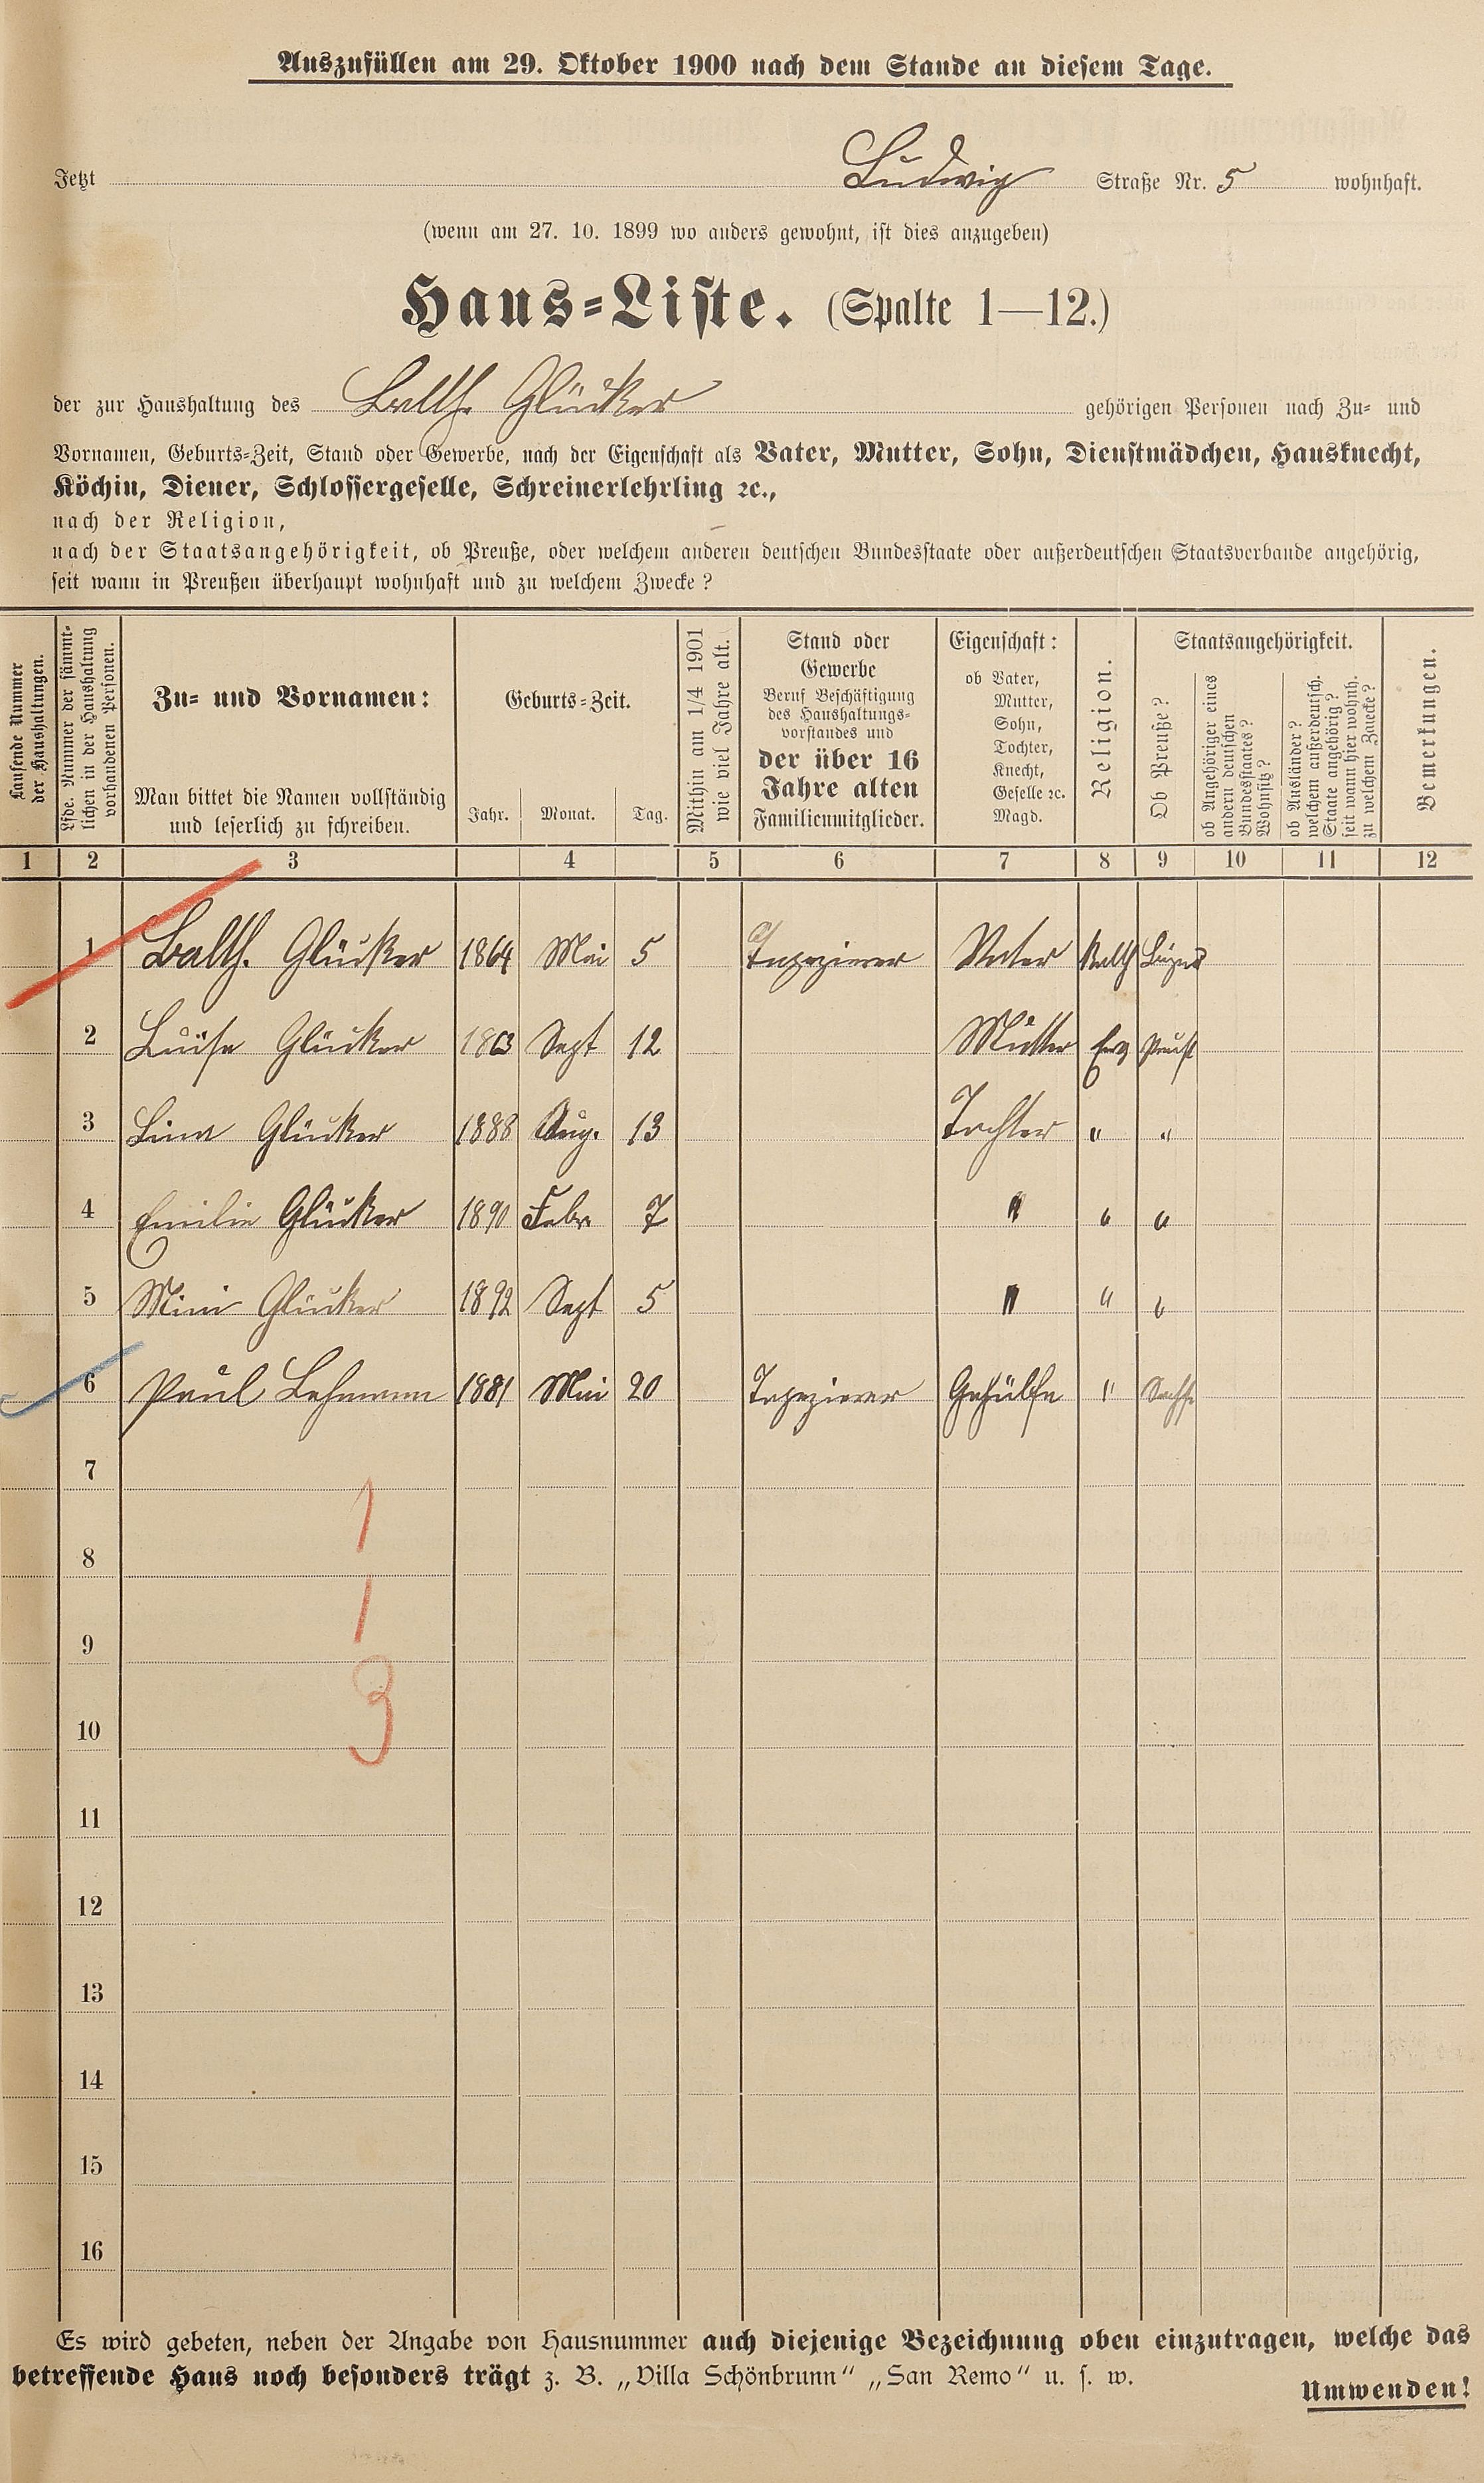 Auszufüllen am 29. Oktober 1900 nach dem Stande an diesem Tage.
Jetzt Ludwig Straße Nr. 5 wohnhaft.
(wenn am 27. 10. 1899 wo anders gewohnt, ist dies anzugeben)
Haus-Liste. (Spalte 1—12.)
der zur Haushaltung des Balth. Glücker gehörigen Personen nach Zu- und
Vornamen, Geburts-Zeit, Stand oder Gewerbe, nach der Eigenschaft als Vater, Mutter, Sohn, Dienstmädchen, Hausknecht,
Köchin, Diener, Schlossergeselle, Schreinerlehrling ꝛc.,
nach der Religion,
nach der Staatsangehörigkeit, ob Preuße, oder welchem anderen deutschen Bundesstaate oder außerdeutschen Staatsverbande angehörig,
seit wann in Preußen überhaupt wohnhaft und zu welchem Zwecke?
Laufende Nummer
der Haushaltungen.
Lfde. Nummer der sämmt-
lichen in der Haushaltung
vorhandenen Personen.
Zu- und Vornamen:
Man bittet die Namen vollständig
und leserlich zu schreiben.
Geburts-Zeit.
Jahr. Monat. Tag.
Mithin am 1/4 1901
wie viel Jahre alt.
Stand oder
Gewerbe
Beruf Beschäftigung
des Haushaltungs-
vorstandes und
der über 16
Jahre alten
Familienmitglieder.
Eigenschaft:
ob Vater,
Mutter,
Sohn,
Tochter,
Knecht,
Geselle ꝛc.
Magd.
Religion.
Staatsangehörigkeit.
Ob Preuße?
ob Angehöriger eines
andern deutschen
Bundesstaates?
Wohnsitz?
ob Ausländer?
welchem außerdeutsch.
Staate angehörig?
seit wann hier wohnh.
zu welchem Zwecke?
Bemerkungen.
1 2 3 4 5 6 7 8 9 10 11 12
1 Balth. Glücker 1864 Mai 5 Tapezierer Vater Kath
2 Luise Glücker 1863 Sept 12 Mutter Evg Preuß
3 Lina Glücker 1888 Aug. 13 Tochter " "
4 Emilie Glücker 1890 Febr 7 " " "
5 Mini Glücker 1892 Sept 5 " " "
6 Paul Lehmann 1881 Mai 20 Tapezierer Gehülfe " Sachse
7
1
8
1
9
3
10
11
12
13
14
15
16
Es wird gebeten, neben der Angabe von Hausnummer auch diejenige Bezeichnung oben einzutragen, welche das
betreffende Haus noch besonders trägt z. B. „Villa Schönbrunn“ „San Remo“ u. s. w.
Umwenden!